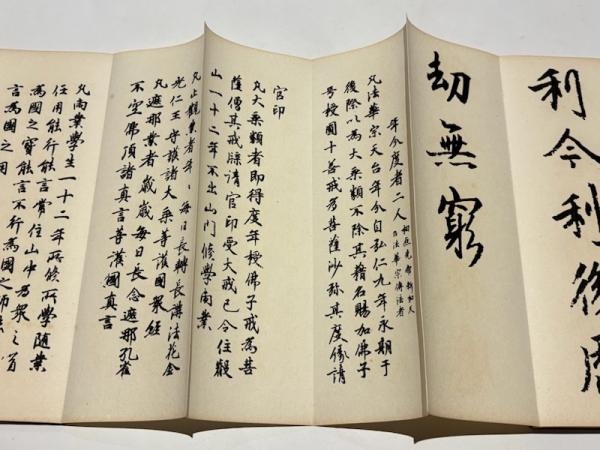 利今利後
劫無窮
年分度者二人
柏原先帝新加天
台法華宗傳法者
凡法華宗天台年分自弘仁九年永期于
後際以為大乘類不除其籍名賜加佛子
号授圓十善戒為菩薩沙弥其度縁請
官印
凡大乘類者即得度年授佛子戒為菩
薩僧其戒牒請官印受大戒已令住叡
山一十二年不出山門修學両業
凡止觀業者年々毎日長轉長講法花金
光仁王守護諸大乘等護國衆經
凡遮那業者歳歳毎日長念遮那孔雀
不空佛頂諸真言等護國真言
凡両業學生一十二年所修所學随業
任用能行能言常住山中為衆之首
為國之寶能言不行為國之師
言為國之用